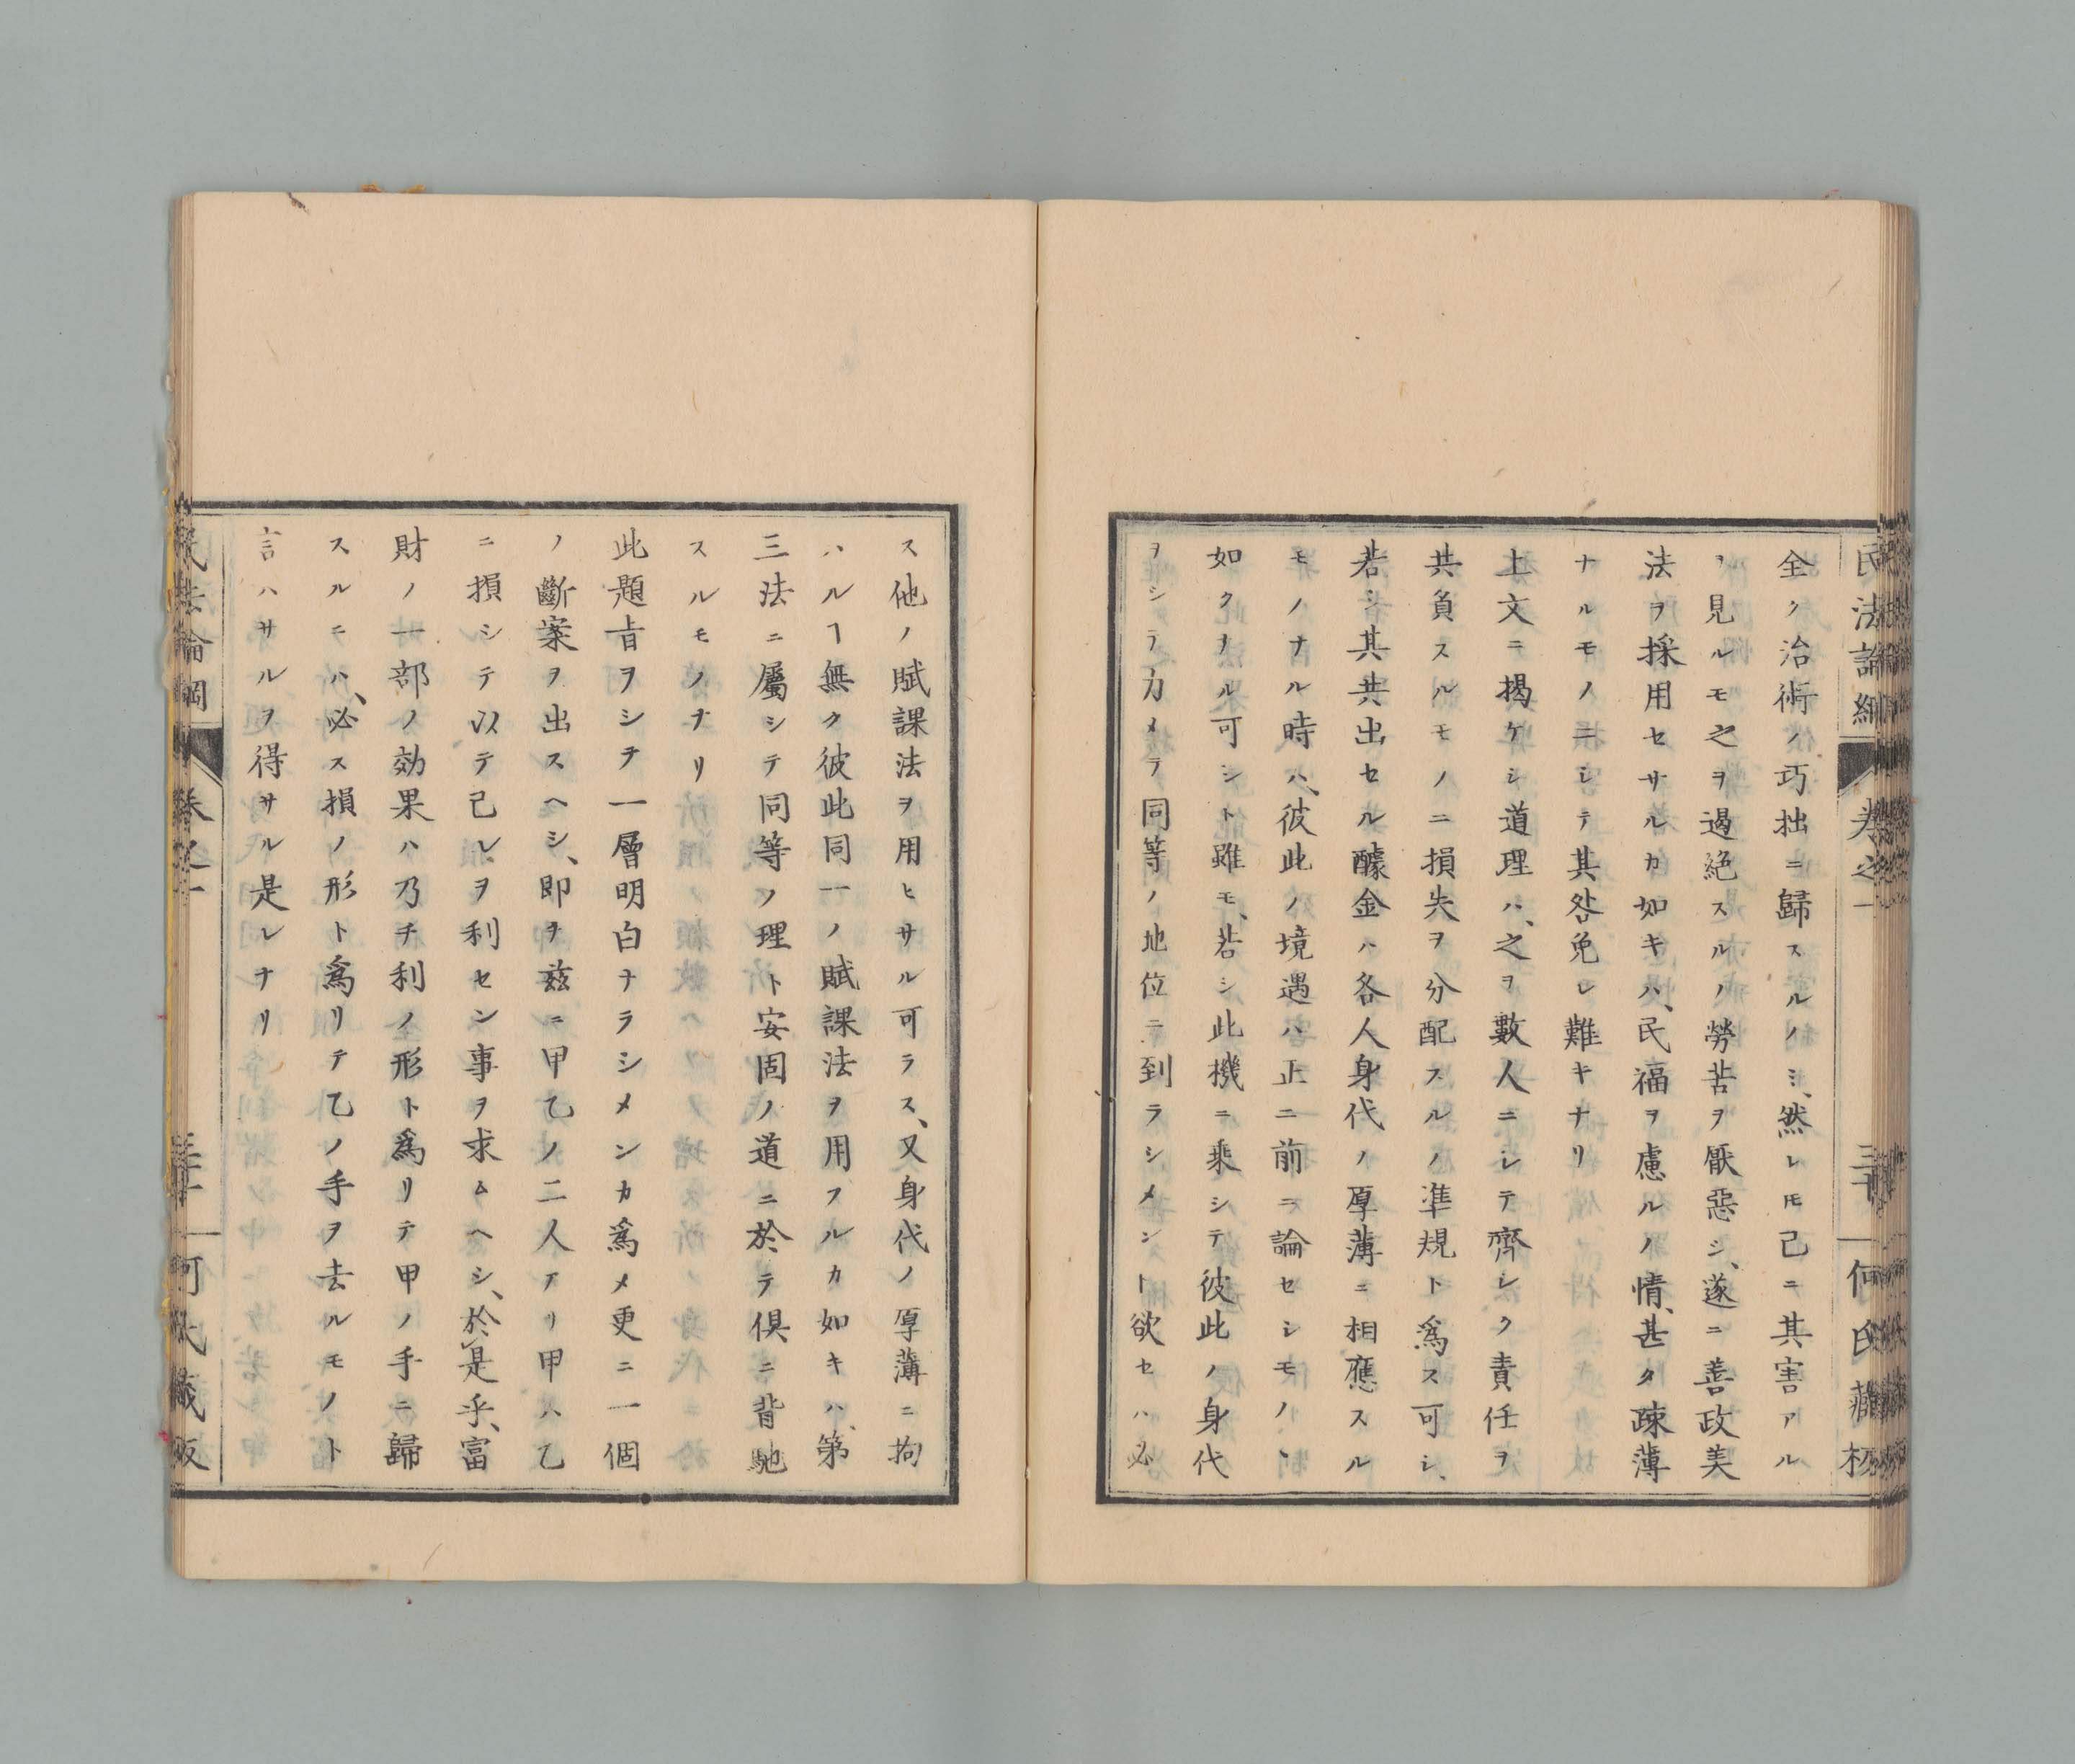 民法論綱 卷之一 三十 何氏藏板
全ク治術ノ巧拙ニ歸スルノミ、然レ𪜈己ニ其害アル
ヿヲ見ルモ之ヲ遏絶スルノ勞苦ヲ厭惡シ、遂ニ善政美
法ヲ採用セサルカ如キハ、民福ヲ慮ルノ情、甚タ疎薄
ナルモノニシテ其咎免レ難キナリ
上文ニ揭ケシ道理ハ、之ヲ數人ニシテ齊シク責任ヲ
共負スルモノニ損失ヲ分配スルノ準規ト爲ス可シ、
若シ其共出セル醵金ハ各人身代ノ厚薄ニ相應スル
モノナル時ハ、彼此ノ境遇ハ正ニ前ニ論セシモノヽ
如クナル可シト雖モ、若シ此機ニ乘シテ彼此ノ身代
ヲシテ力メテ同等ノ地位ニ到ラシメント欲セハ必
ス他ノ賦課法ヲ用ヒサル可ラス、又身代ノ厚薄ニ拘
ハルヿ無ク彼此同一ノ賦課法ヲ用フルカ如キハ、第
三法ニ屬シテ同等ノ理ト安固ノ道ニ於テ俱ニ背馳
スルモノナリ
此題旨ヲシテ一層明白ナラシメンカ爲メ更ニ一個
ノ斷案ヲ出スヘシ、即チ茲ニ甲乙ノ二人アリ甲ハ乙
ニ損シテ以テ己レヲ利セン事ヲ求ムヘシ、於是乎、富
財ノ一部ノ効果ハ乃チ利ノ形ト爲リテ甲ノ手ニ歸
スルニハ、必ス損ノ形ト爲リテ乙ノ手ヲ去ルモノト
言ハサルヲ得サル是レナリ
民法論綱 卷之一 何氏藏板